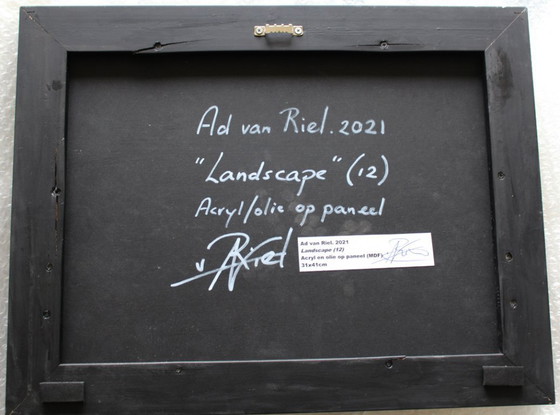 Ad van Riel. 2021
"Landscape" (12)
Acryl/olie op paneel
v Riel
Ad van Riel. 2021
Landscape (12)
Acryl en olie op paneel (MDF)
31x41cm